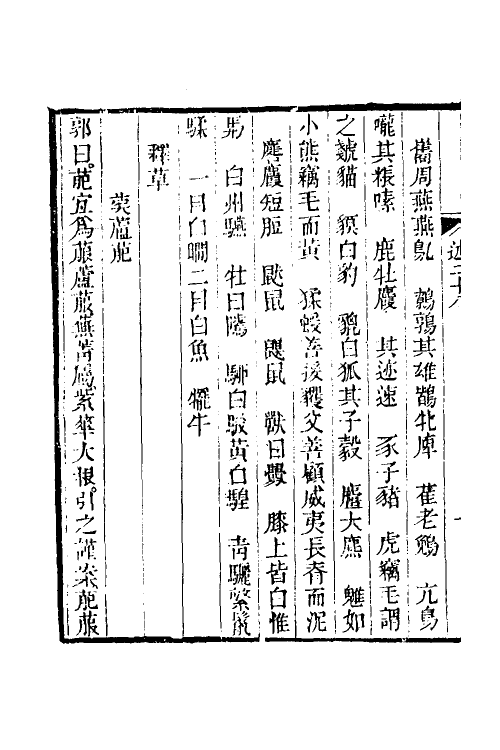 巂周燕燕鳦　鶉鶉其雄鶛牝庳　萑老鵵　亢鳥
嚨其粻嗉　鹿牡麚　其迹速　豕子豬　虎竊毛謂
之虦貓　貘白豹　貔白狐其子豰　麠大麃　魋如
小熊竊毛而黃　猱蝯善援貜父善顧威夷長脊而泥
麔麚短脰　鼣鼠　鼮鼠　獸曰釁　膝上皆白惟
馵　白州驠　牡曰騭　騢黃白騜　青驪繁鬛
騥　一目白瞷二目白魚　犤牛
釋草
葖蘆萉
郭曰萉宜爲菔蘆菔蕪菁屬紫華大根引之謹案萉菔